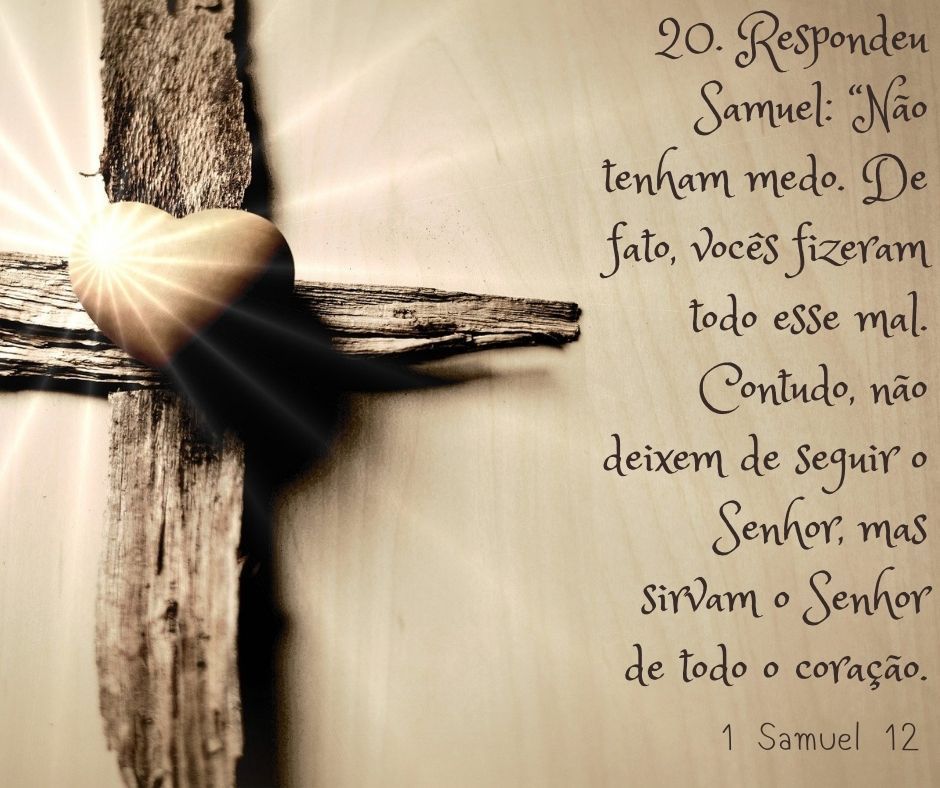 20. Respondeu
Samuel: “Não
tenham medo. De
fato, vocês fizeram
todo esse mal.
Contudo, não
deixem de seguir o
Senhor, mas
sirvam o Senhor
de todo o coração.
1 Samuel 12